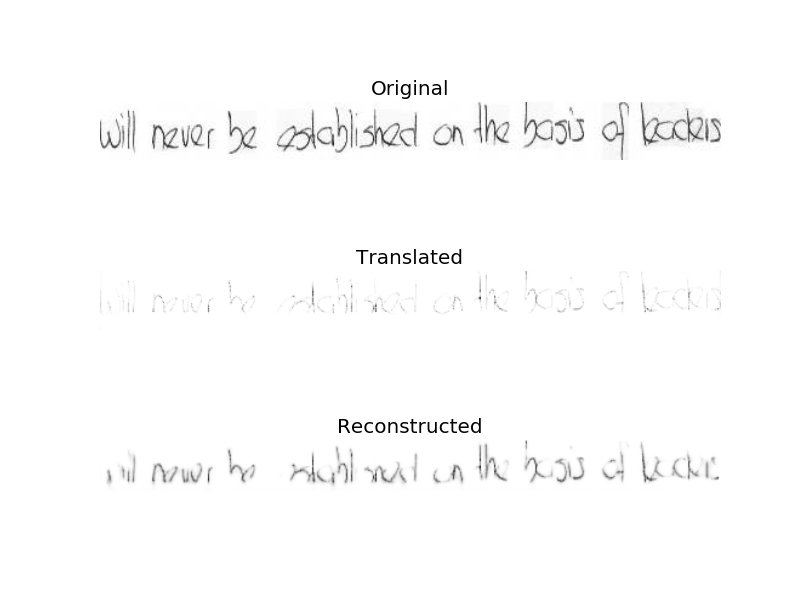 Original
will never be established on the basis of leaders
Translated
will never be established on the basis of leaders
Reconstructed
will never be established on the basis of leaders